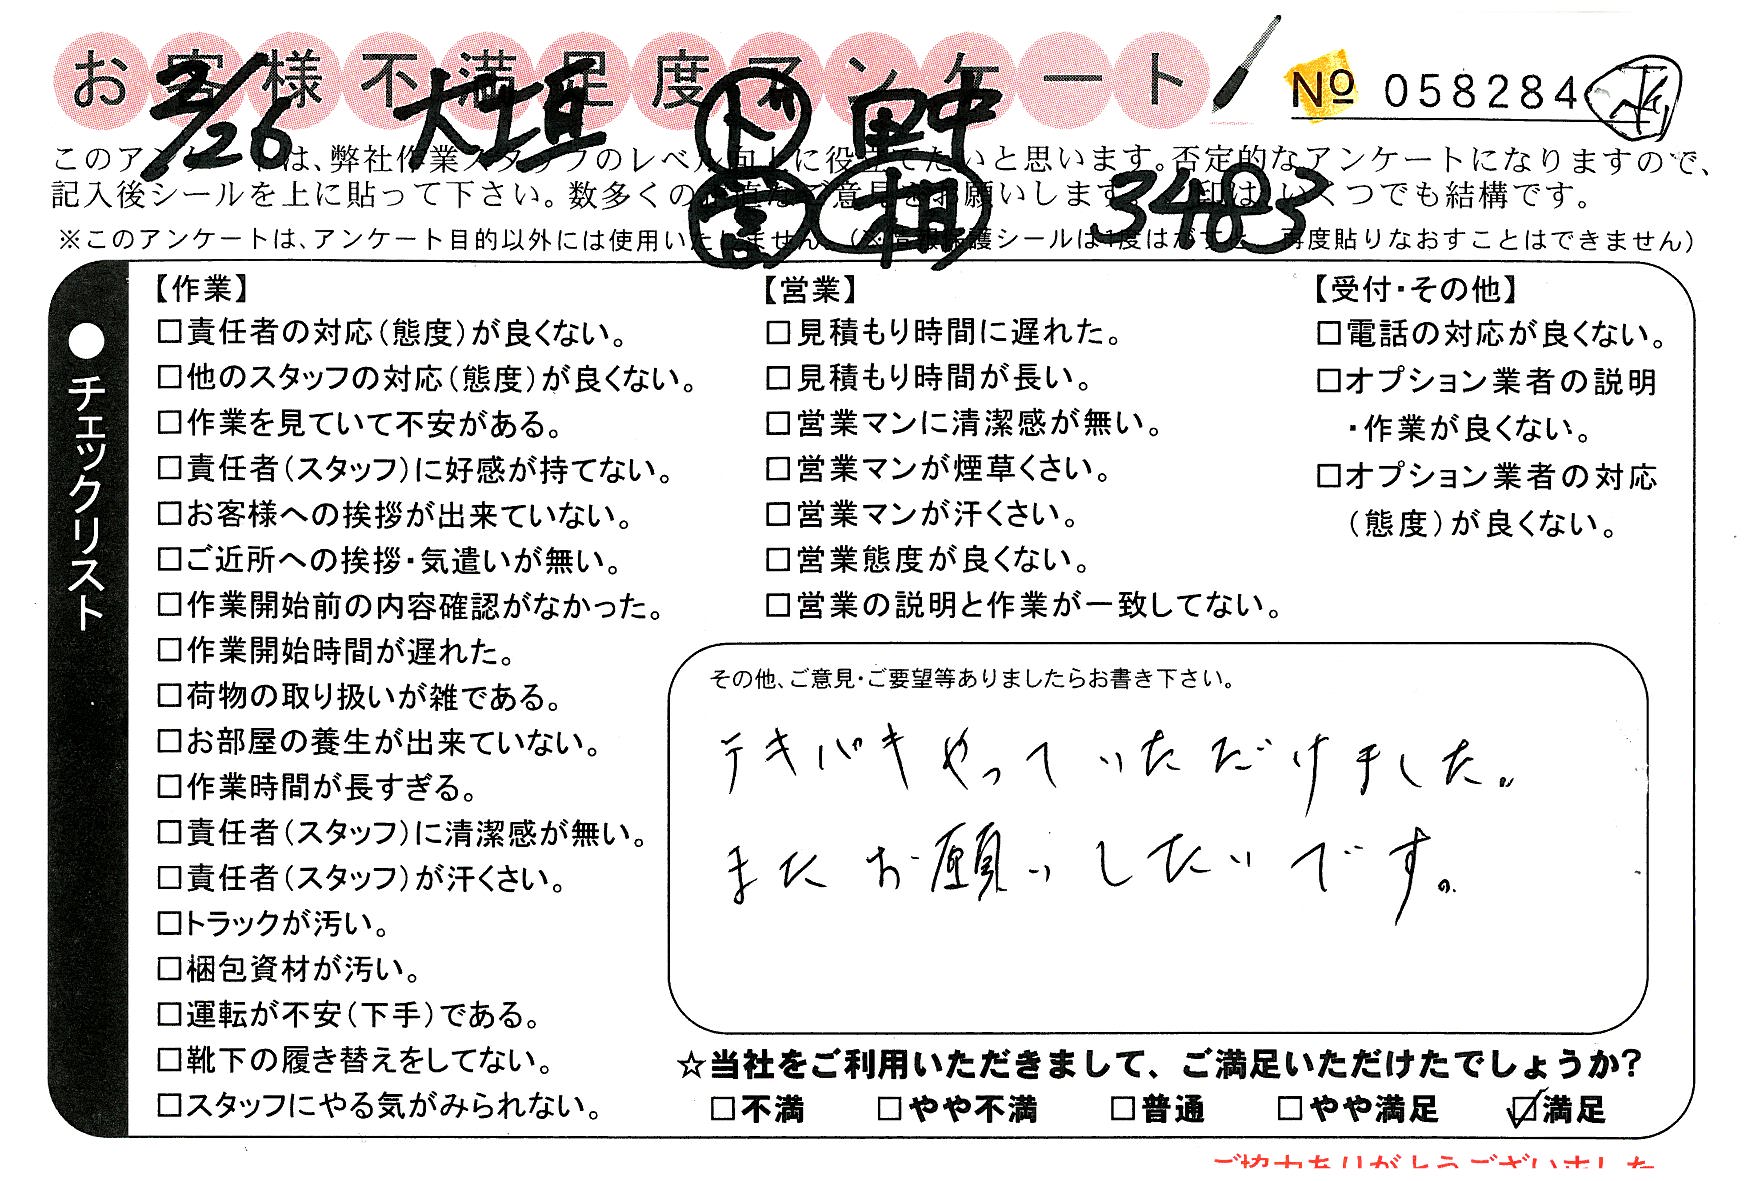 お客様不満足度アンケート
№ 058284
2/26 大垣 ド 田中
営 相 3483
このアンケートは、弊社作業スタッフのレベル向上に役立てたいと思います。否定的なアンケートになりますので、
記入後シールを上に貼って下さい。数多くの正直なご意見をお願いします。 印は、いくつでも結構です。
※このアンケートは、アンケート目的以外には使用いたしません。(※情報保護シールは1度はがすと、再度貼りなおすことはできません)
●チェックリスト
【作業】
□責任者の対応(態度)が良くない。
□他のスタッフの対応(態度)が良くない。
□作業を見ていて不安がある。
□責任者(スタッフ)に好感が持てない。
□お客様への挨拶が出来ていない。
□ご近所への挨拶・気遣いが無い。
□作業開始前の内容確認がなかった。
□作業開始時間が遅れた。
□荷物の取り扱いが雑である。
□お部屋の養生が出来ていない。
□作業時間が長すぎる。
□責任者(スタッフ)に清潔感が無い。
□責任者(スタッフ)が汗くさい。
□トラックが汚い。
□梱包資材が汚い。
□運転が不安(下手)である。
□靴下の履き替えをしてない。
□スタッフにやる気がみられない。
【営業】
□見積もり時間に遅れた。
□見積もり時間が長い。
□営業マンに清潔感が無い。
□営業マンが煙草くさい。
□営業マンが汗くさい。
□営業態度が良くない。
□営業の説明と作業が一致してない。
【受付・その他】
□電話の対応が良くない。
□オプション業者の説明
・作業が良くない。
□オプション業者の対応
(態度)が良くない。
その他、ご意見・ご要望等ありましたらお書き下さい。
テキパキやっていただけました。
またお願いしたいです。
☆当社をご利用いただきまして、ご満足いただけたでしょうか?
□不満 □やや不満 □普通 □やや満足 ☑満足
ご協力ありがとうございました